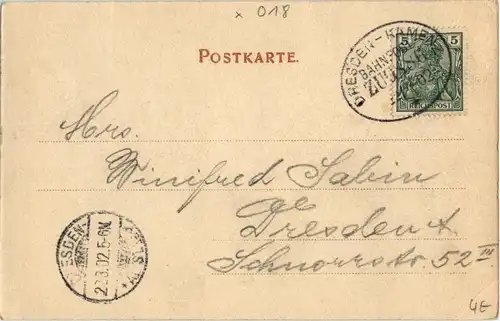 x 018
POSTKARTE.
DRESDEN-KAMENZ
BAHNPOST
ZUG
5 5
REICHSPOST
Mrs.
Winifred Sabin
Dresden A
Schnorrstr. 52 III
DRESDEN-
22.3.02.5-6N.
4E